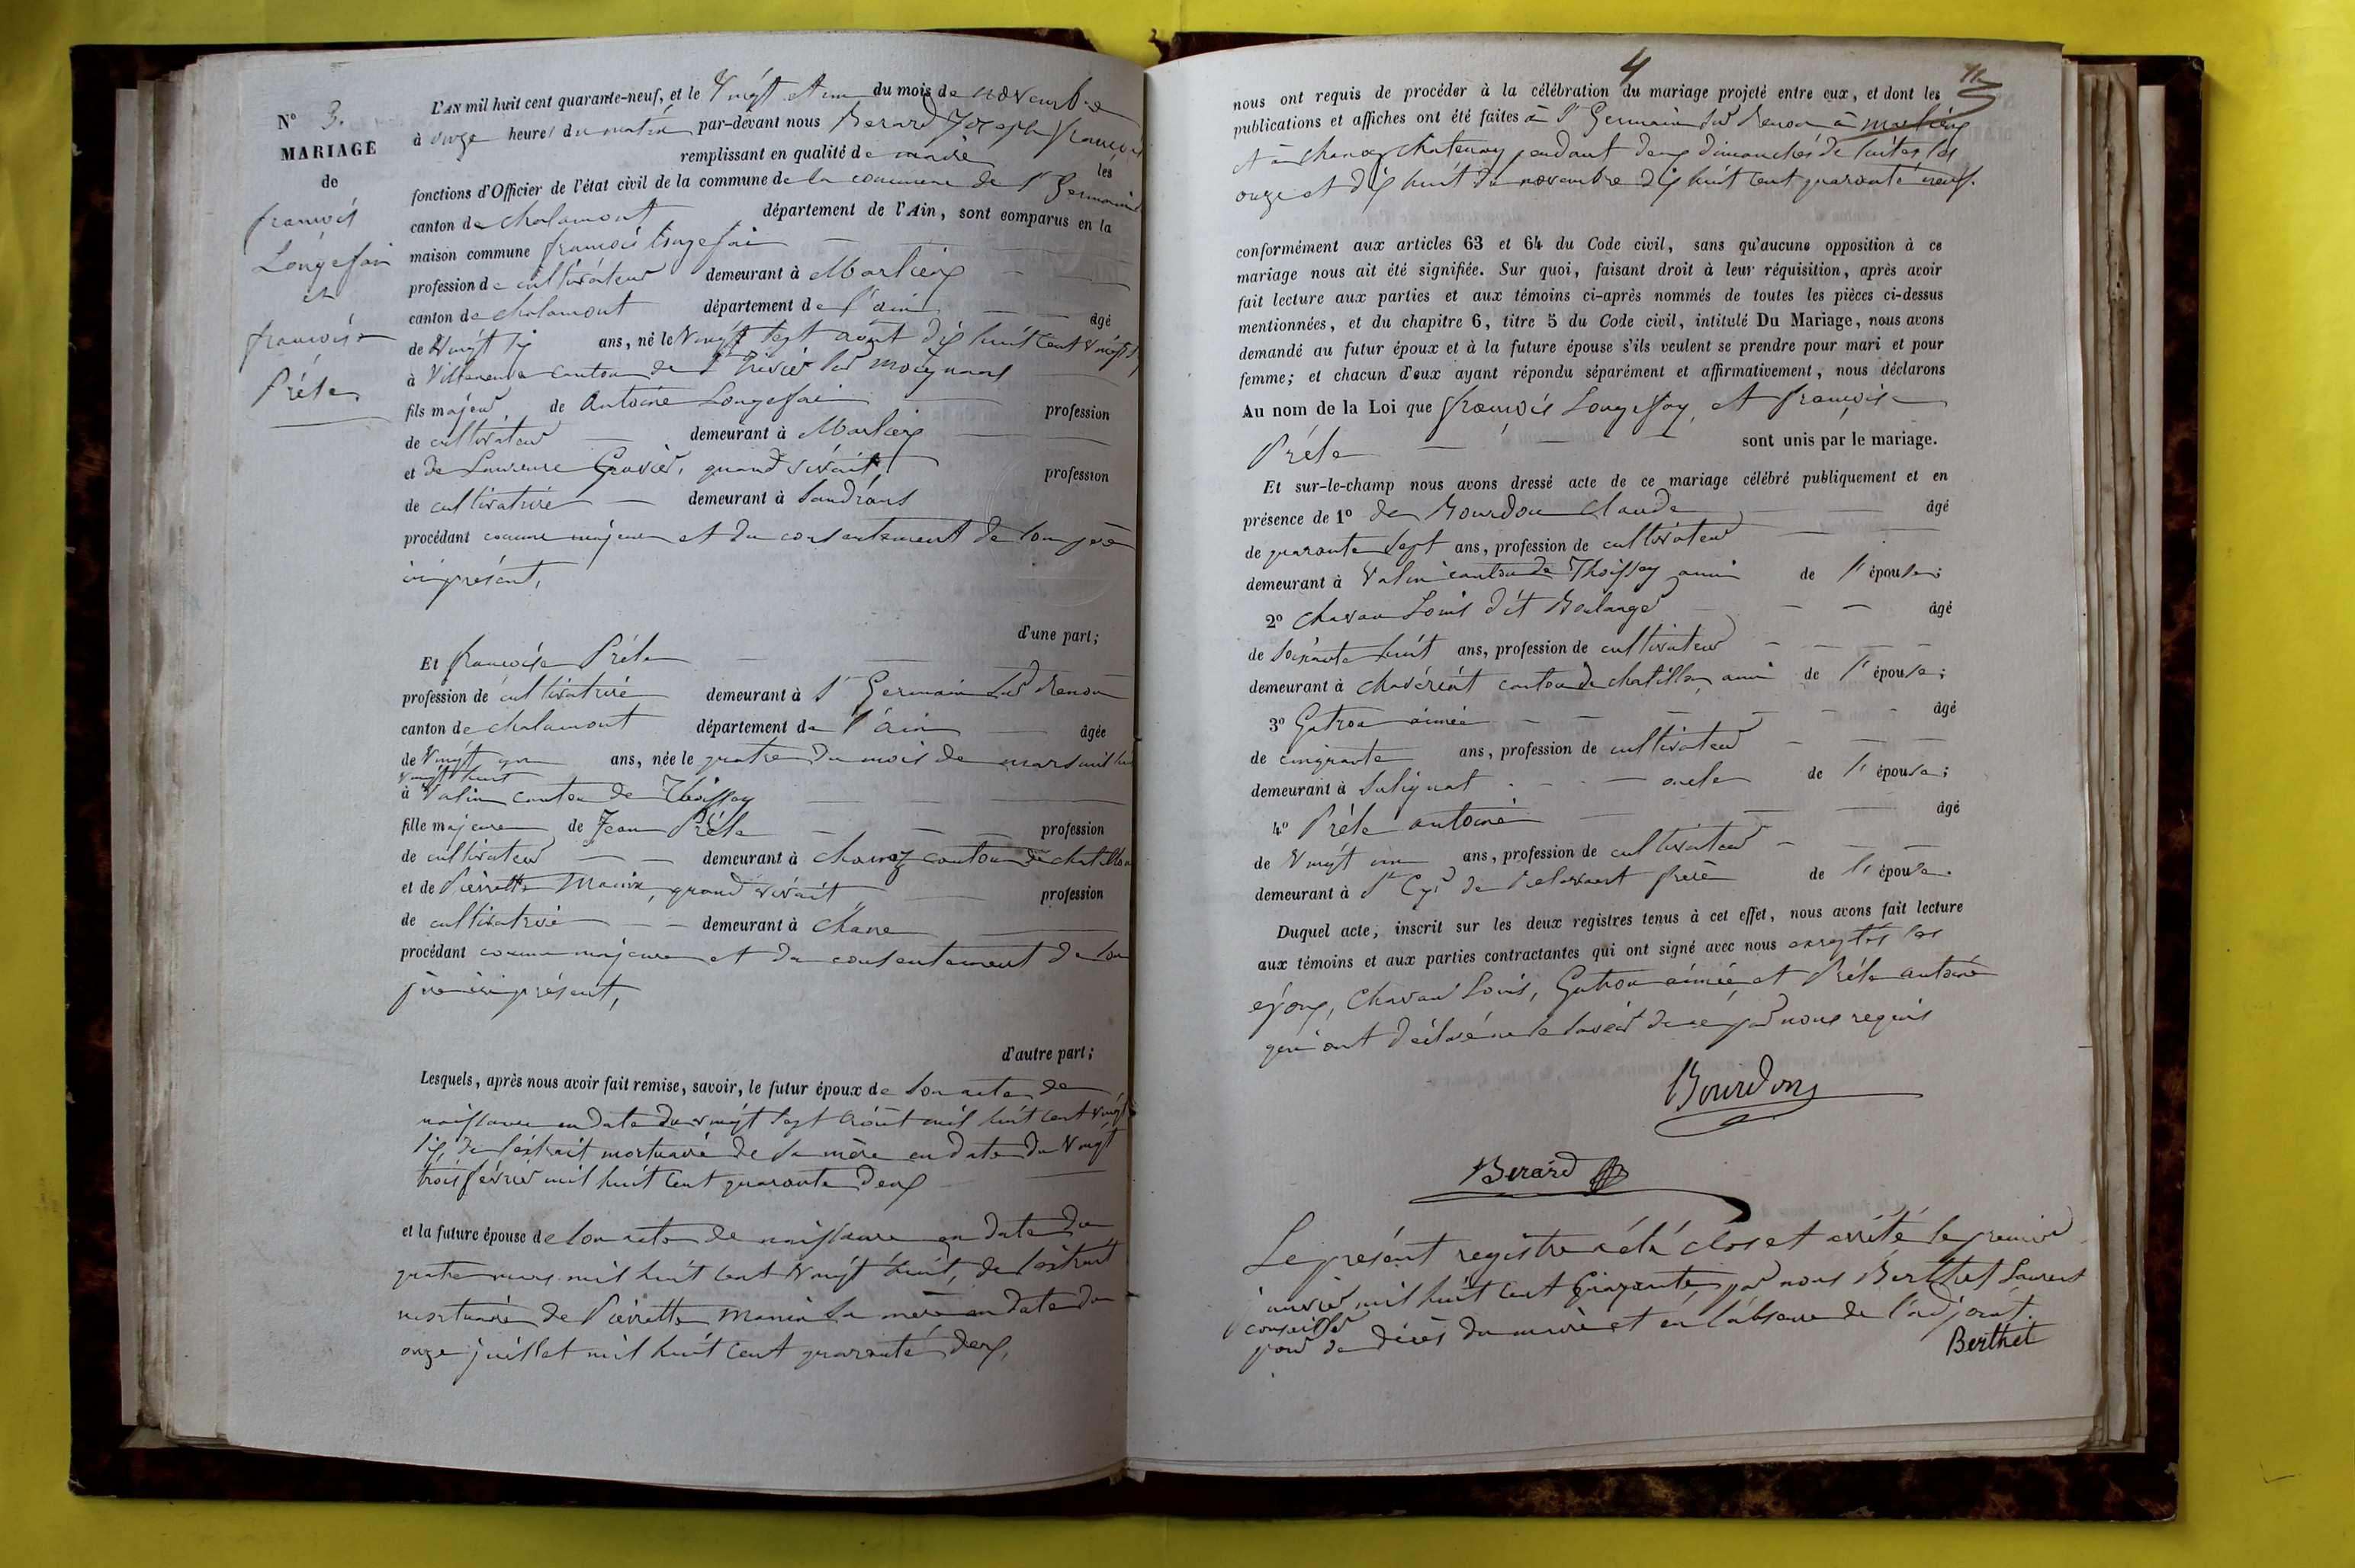 N° 3.
MARIAGE
de
françois
Longefai
et
françoise
Préle
L'AN mil huit cent quarante-neuf, et le Vingt et un du mois de novembre
à onze heures du matin par-devant nous Berard Joseph françois
remplissant en qualité de maire les
fonctions d'Officier de l'état civil de la commune de la commune de St Germain
canton de chalamont département de l'Ain, sont comparus en la
maison commune françois Longefai
profession de cultivateur demeurant à Marlieux
canton de chalamont département de l'ain âgé
de Vingt ans, né le Vingt sept août dix huit cent vingt
à Villeneuve canton de St Trivier sur moignans
fils majeur de Antoine Longefai profession
de cultivateur demeurant à Marlieux
et de Laurence quand vivait profession
de cultivatrice demeurant à Sandrans
procédant comme majeur et du consentement de son père
ici présent,
d'une part;
Et françoise Préle
profession de cultivatrice demeurant à St Germain sur Renon
canton de chalamont département de l'ain âgée
de Vingt un ans, née le quatre du mois de mars mil huit
vingt huit
à Valin canton de Thoissey
fille majeure de Jean Préle profession
de cultivateur demeurant à chanoz canton de chatillon
et de Pierrette quand vivait profession
de cultivatrice demeurant à
procédant comme majeure et du consentement de son
père ici présent,
d'autre part;
Lesquels, après nous avoir fait remise, savoir, le futur époux de son acte de
naissance en date du vingt sept août mil huit cent vingt
de l'extrait mortuaire de sa mère en date du Vingt
trois février mil huit cent quarante deux
et la future épouse de son acte de naissance en date du
quatre mars mil huit cent vingt huit, de l'extrait
mortuaire de Pierrette sa mère en date du
onze juillet mil huit cent quarante deux,
4
nous ont requis de procéder à la célébration du mariage projeté entre eux, et dont les
publications et affiches ont été faites à St Germain sur Renon à marlieux
et à chanoz chatenay pendant deux dimanches de suites les
onze et dix huit du novembre dix huit cent quarante neuf.
conformément aux articles 63 et 64 du Code civil, sans qu'aucune opposition à ce
mariage nous ait été signifiée. Sur quoi, faisant droit à leur réquisition, après avoir
fait lecture aux parties et aux témoins ci-après nommés de toutes les pièces ci-dessus
mentionnées, et du chapitre 6, titre 5 du Code civil, intitulé Du Mariage, nous avons
demandé au futur époux et à la future épouse s'ils veulent se prendre pour mari et pour
femme; et chacun d'eux ayant répondu séparément et affirmativement, nous déclarons
Au nom de la Loi que françois Longefay et françoise
Préle sont unis par le mariage.
Et sur-le-champ nous avons dressé acte de ce mariage célébré publiquement et en
présence de 1° de Bourdon Claude âgé
de quarante sept ans, profession de cultivateur
demeurant à Valin canton de Thoissey ami de l'épouse;
2° Chavan Louis dit Boulange âgé
de soixante huit ans, profession de cultivateur
demeurant à chavériat canton de chatillon ami de l'épouse;
3° Gutron aimée âgé
de cinquante ans, profession de cultivateur
demeurant à Sulignat oncle de l'épouse;
4° Préle antoine âgé
de Vingt ans, profession de cultivateur
demeurant à St Cyr de frère de l'épouse.
Duquel acte, inscrit sur les deux registres tenus à cet effet, nous avons fait lecture
aux témoins et aux parties contractantes qui ont signé avec nous exceptés les
époux, Chavan Louis, Gutron aimée et Préle antoine
qui ont déclaré ne le savoir de ce par nous requis
Bourdon
Berard
Le présent registre a été clos et arrêté le premier
janvier mil huit cent cinquante par nous Berthet Laurent
conseiller
pour de décès du maire et en l'absence de l'adjoint.
Berthet